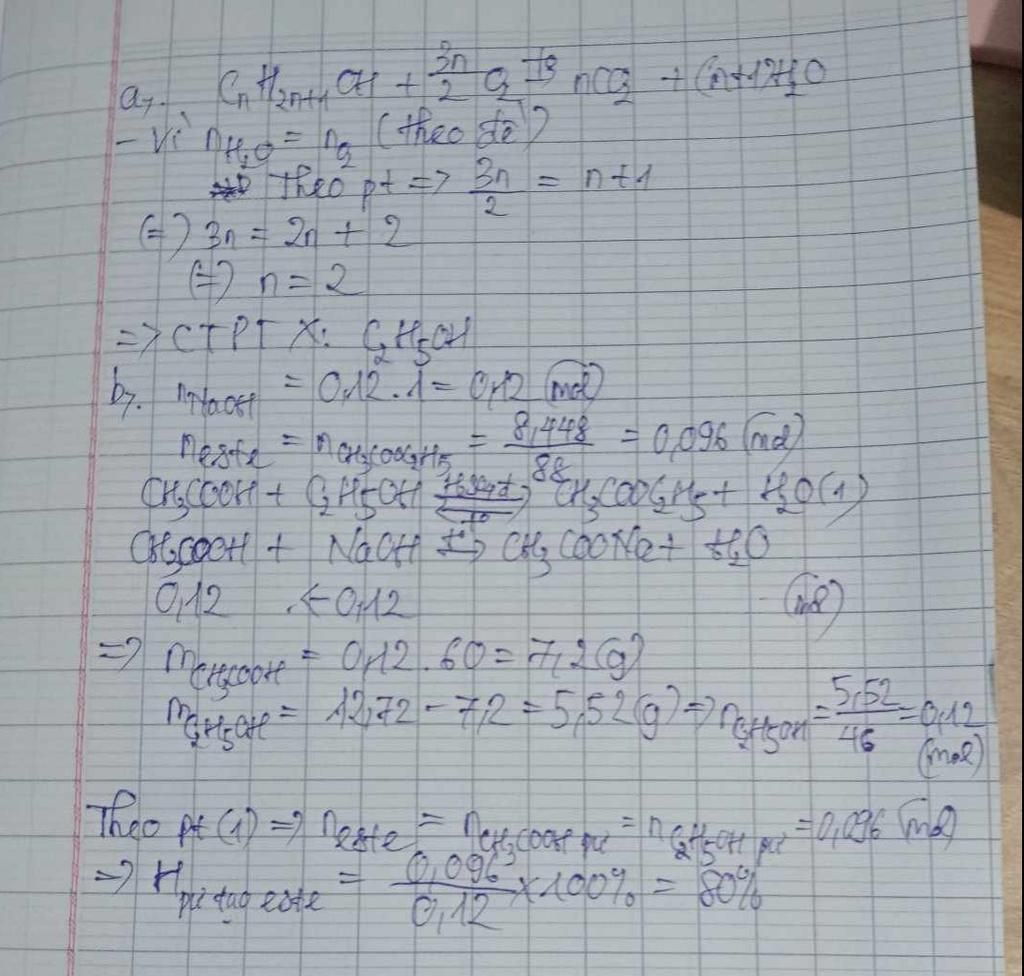 a, CnH2n+1OH + 3n/2 O2 t° nCO2 + (n+1)H2O
- Vì nH2O = nO2 (theo đề)
Theo pt => 3n/2 = n+1
(=) 3n = 2n + 2
(=) n = 2
=> CTPT X: C2H5OH
b, nNaOH = 0,12 . 1 = 0,12 (mol)
neste = nCH3COOC2H5 = 8,448/88 = 0,096 (mol)
CH3COOH + C2H5OH ⇌ (H2SO4đ, t°) CH3COOC2H5 + H2O (1)
CH3COOH + NaOH t°→ CH3COONa + H2O
0,12 ← 0,12 (mol)
=> mCH3COOH = 0,12 . 60 = 7,2 (g)
mC2H5OH = 12,72 - 7,2 = 5,52 (g) => nC2H5OH = 5,52/46 = 0,12 (mol)
Theo pt (1) => neste = nCH3COOH pư = nC2H5OH pư = 0,096 (mol)
=> H pư tạo este = 0,096/0,12 × 100% = 80%